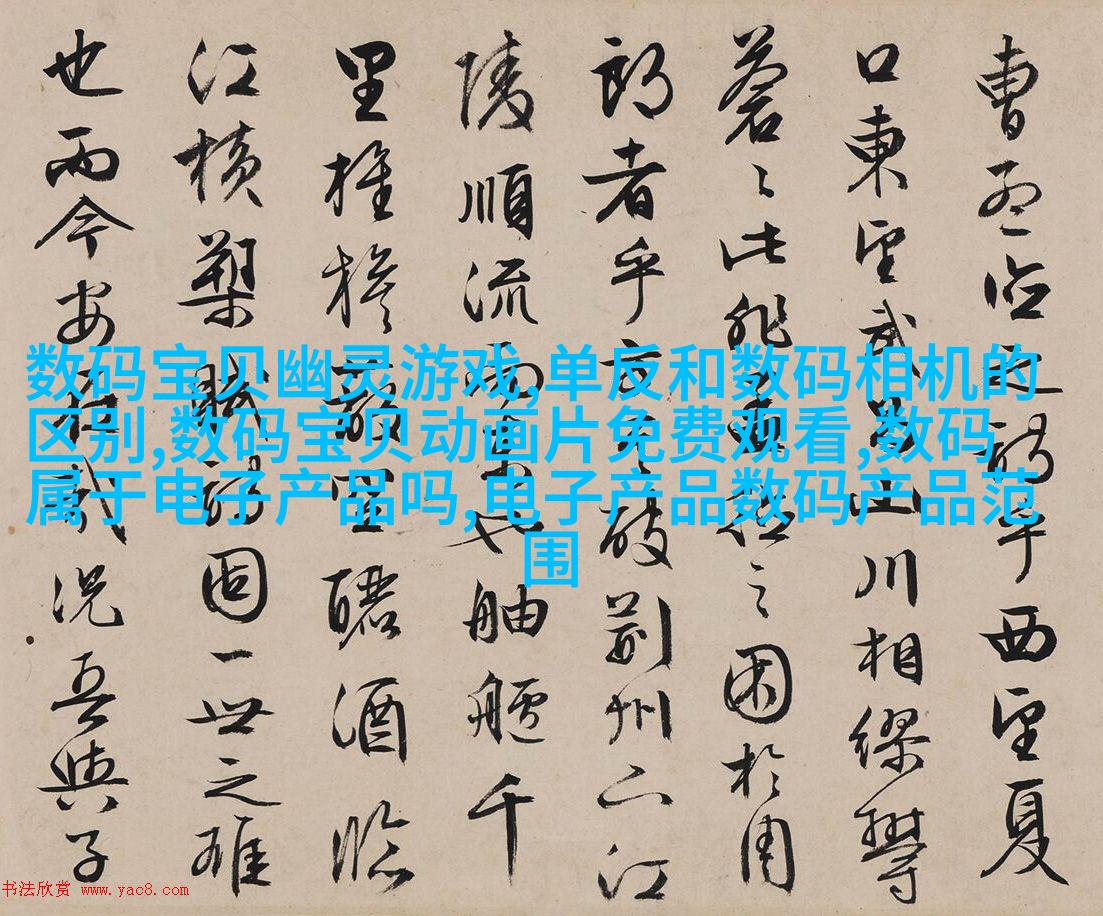 曹孟德之詩乎西望夏
口東望武昌山川相繆鬱
蒼〻此非孟德之困於周
郎者乎方其破荊州下江
陵順流而東也舳艫千
里旌旗蔽空釃酒臨
江橫槊賦詩固一世之雄
也而今安在哉況吾與子
数码宝贝幽灵游戏,单反和数码相机的
区别,数码宝贝动画片免费观看,数码
属于电子产品吗,电子产品数码产品范
围
书法欣赏 www.yac8.com